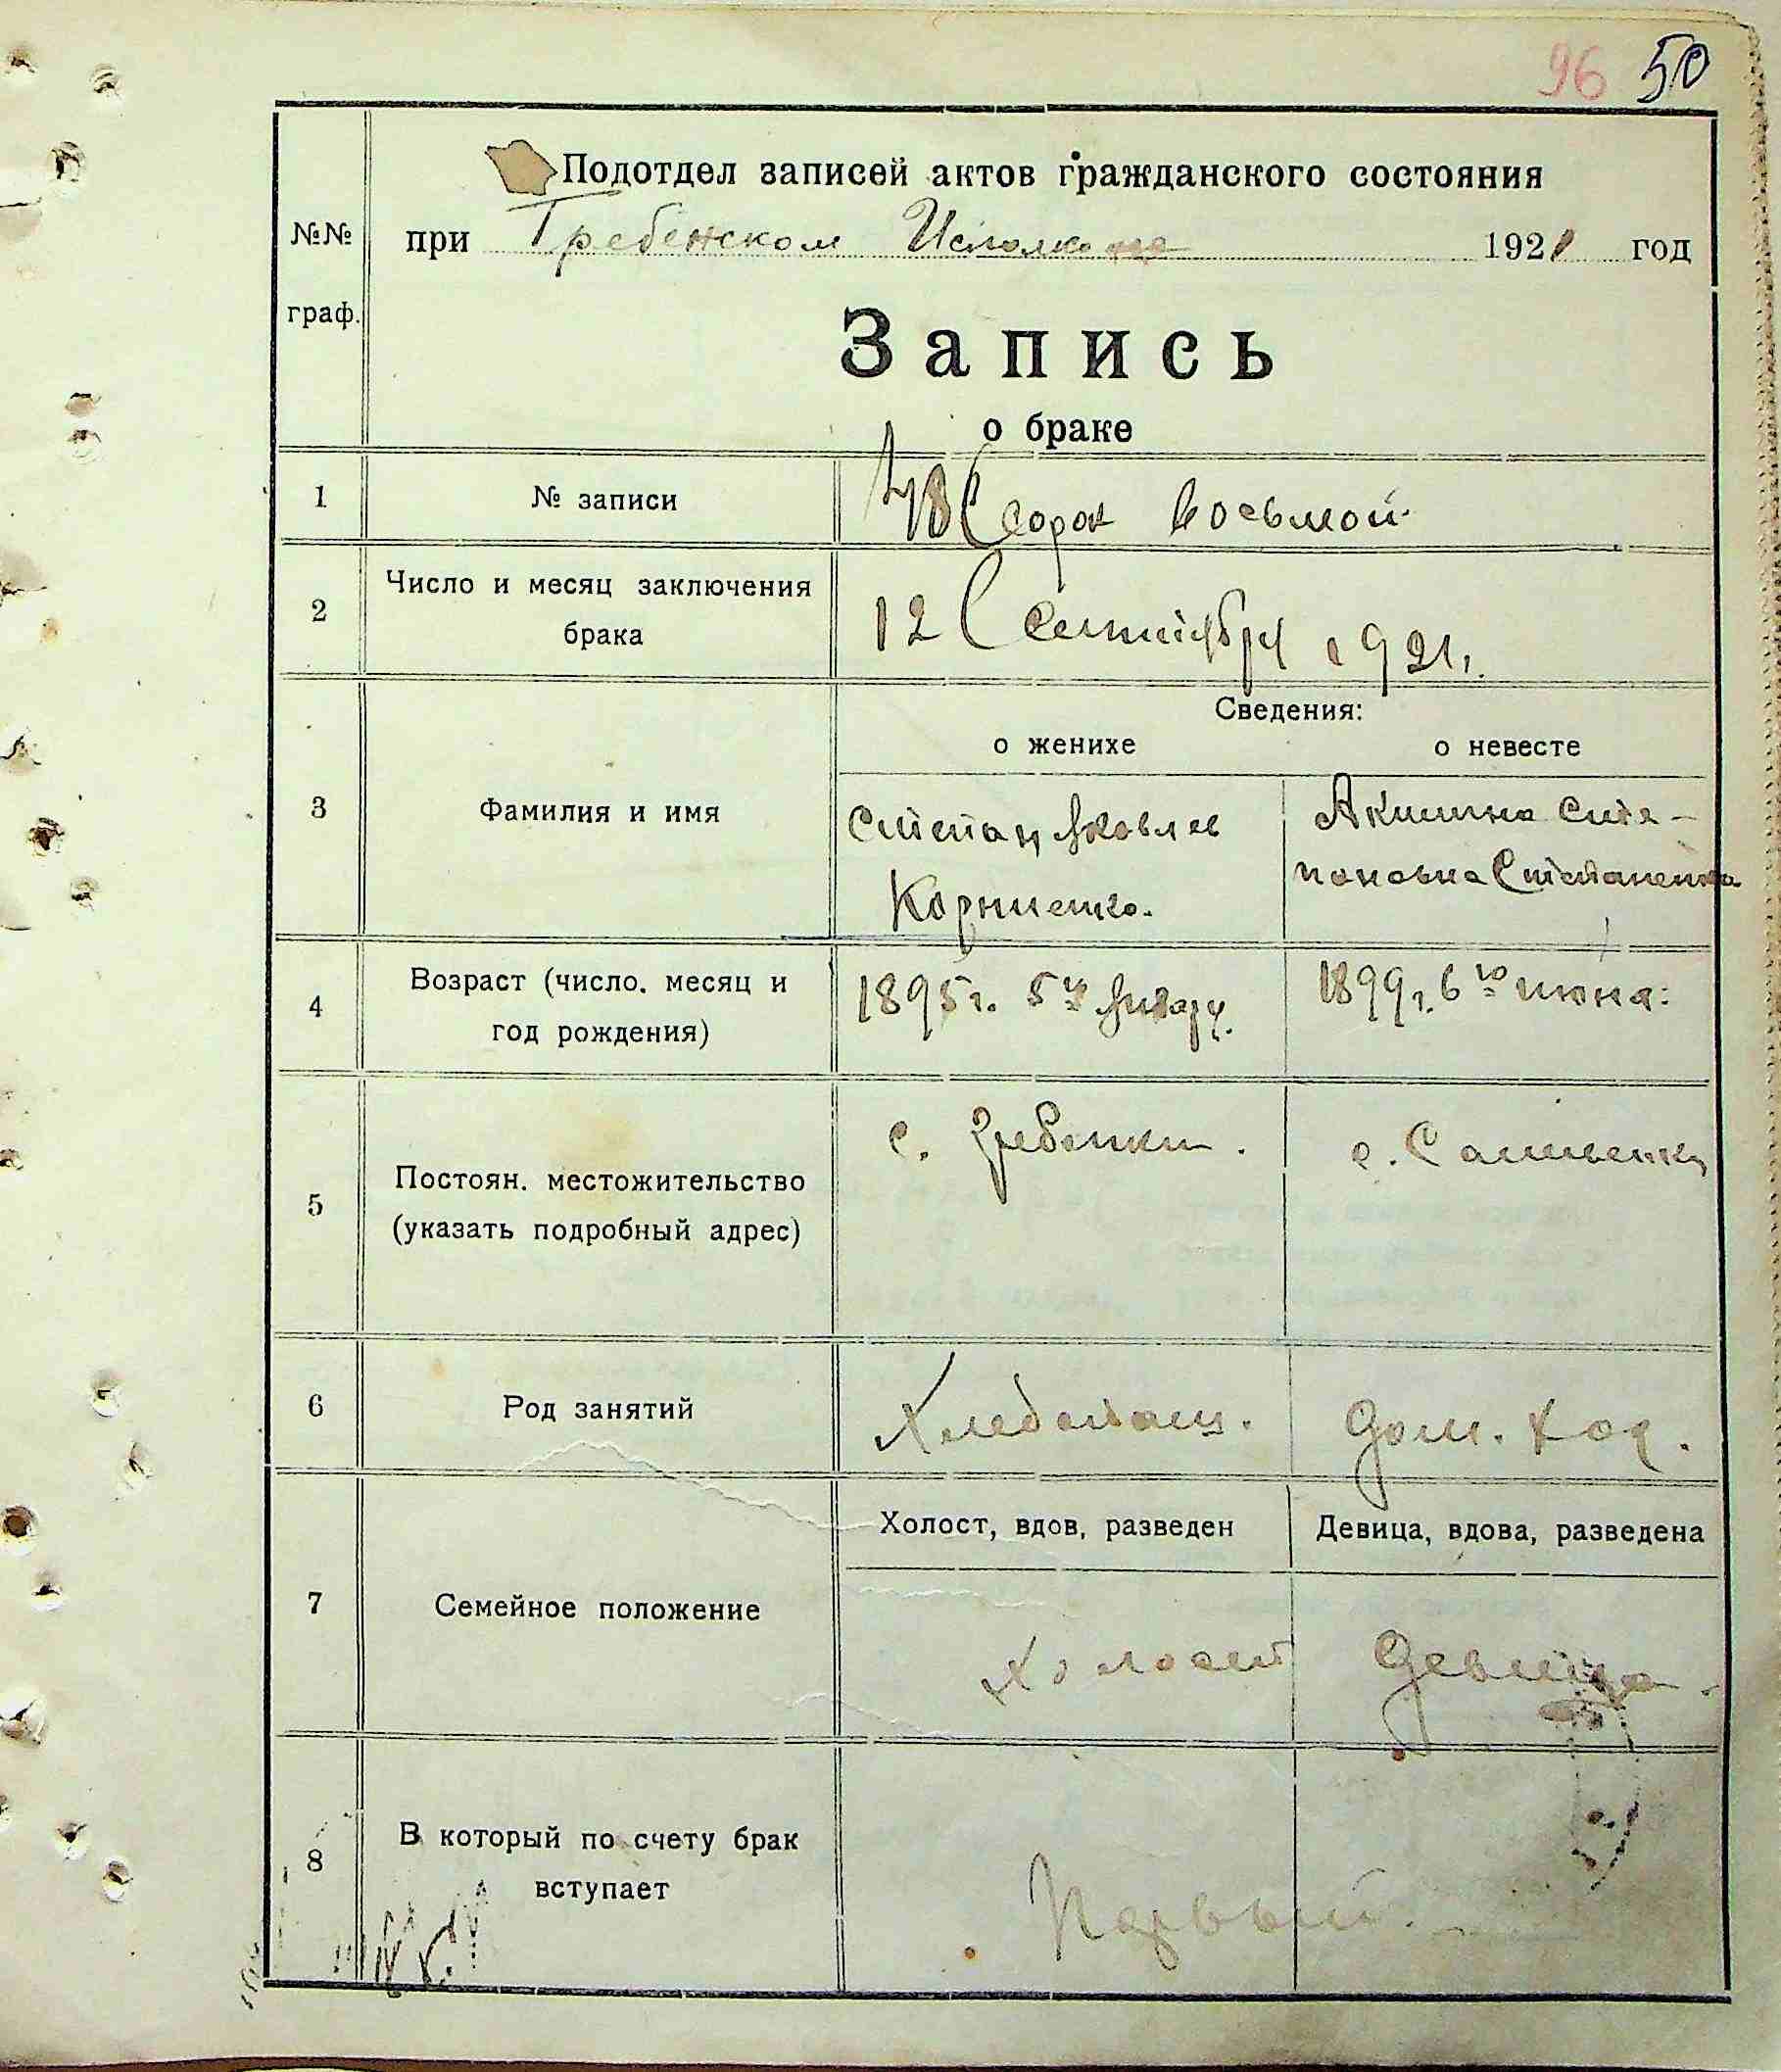 96 50
Подотдел записей актов гражданского состояния
№№ граф.
при Гребенском Исполкоме 1921 год
Запись
о браке
1 № записи 48 Сорок восьмой
2 Число и месяц заключения брака 12 Сентября 1921.
Сведения:
о женихе о невесте
3 Фамилия и имя
Степан Яковлев
Корниенко.
Акилина Сте-
пановна Степаненко
4 Возраст (число, месяц и
год рождения)
1895г. 5го Января.
1899г. 6го июня:
5 Постоян. местожительство
(указать подробный адрес)
с. Гребенки.
с.
6 Род занятий Хлебопаш. Дом. Хоз.
Холост, вдов, разведен Девица, вдова, разведена
7 Семейное положение
холост Девица
8 В который по счету брак
вступает
Первый.